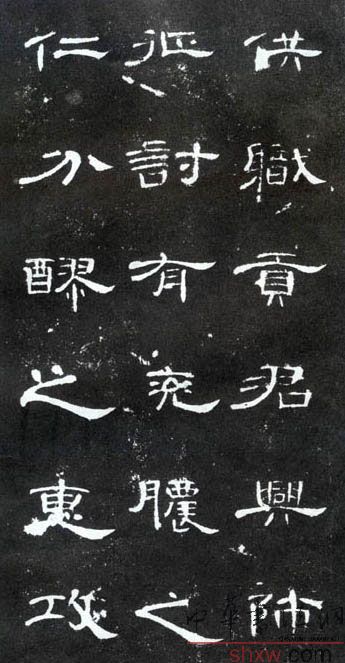 供職貢君興師
征討有兖膿之
仁分醪之惠攻
shxw.com